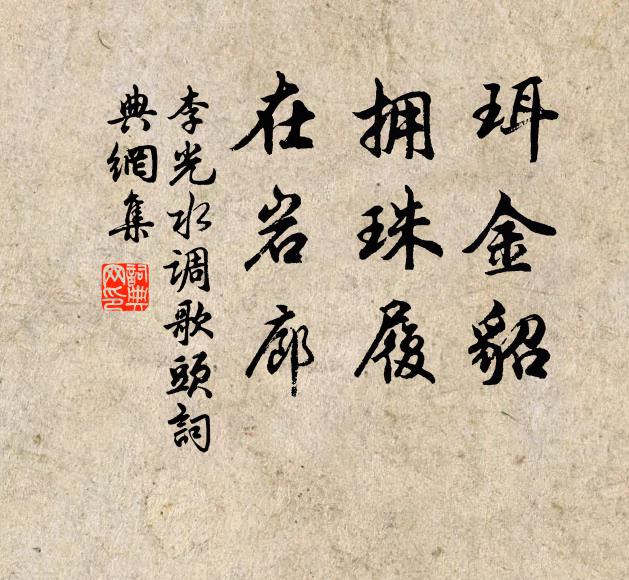 珥金貂
拥珠履
在岩廊
李光水调歌頭詞
典網集
詞典网印